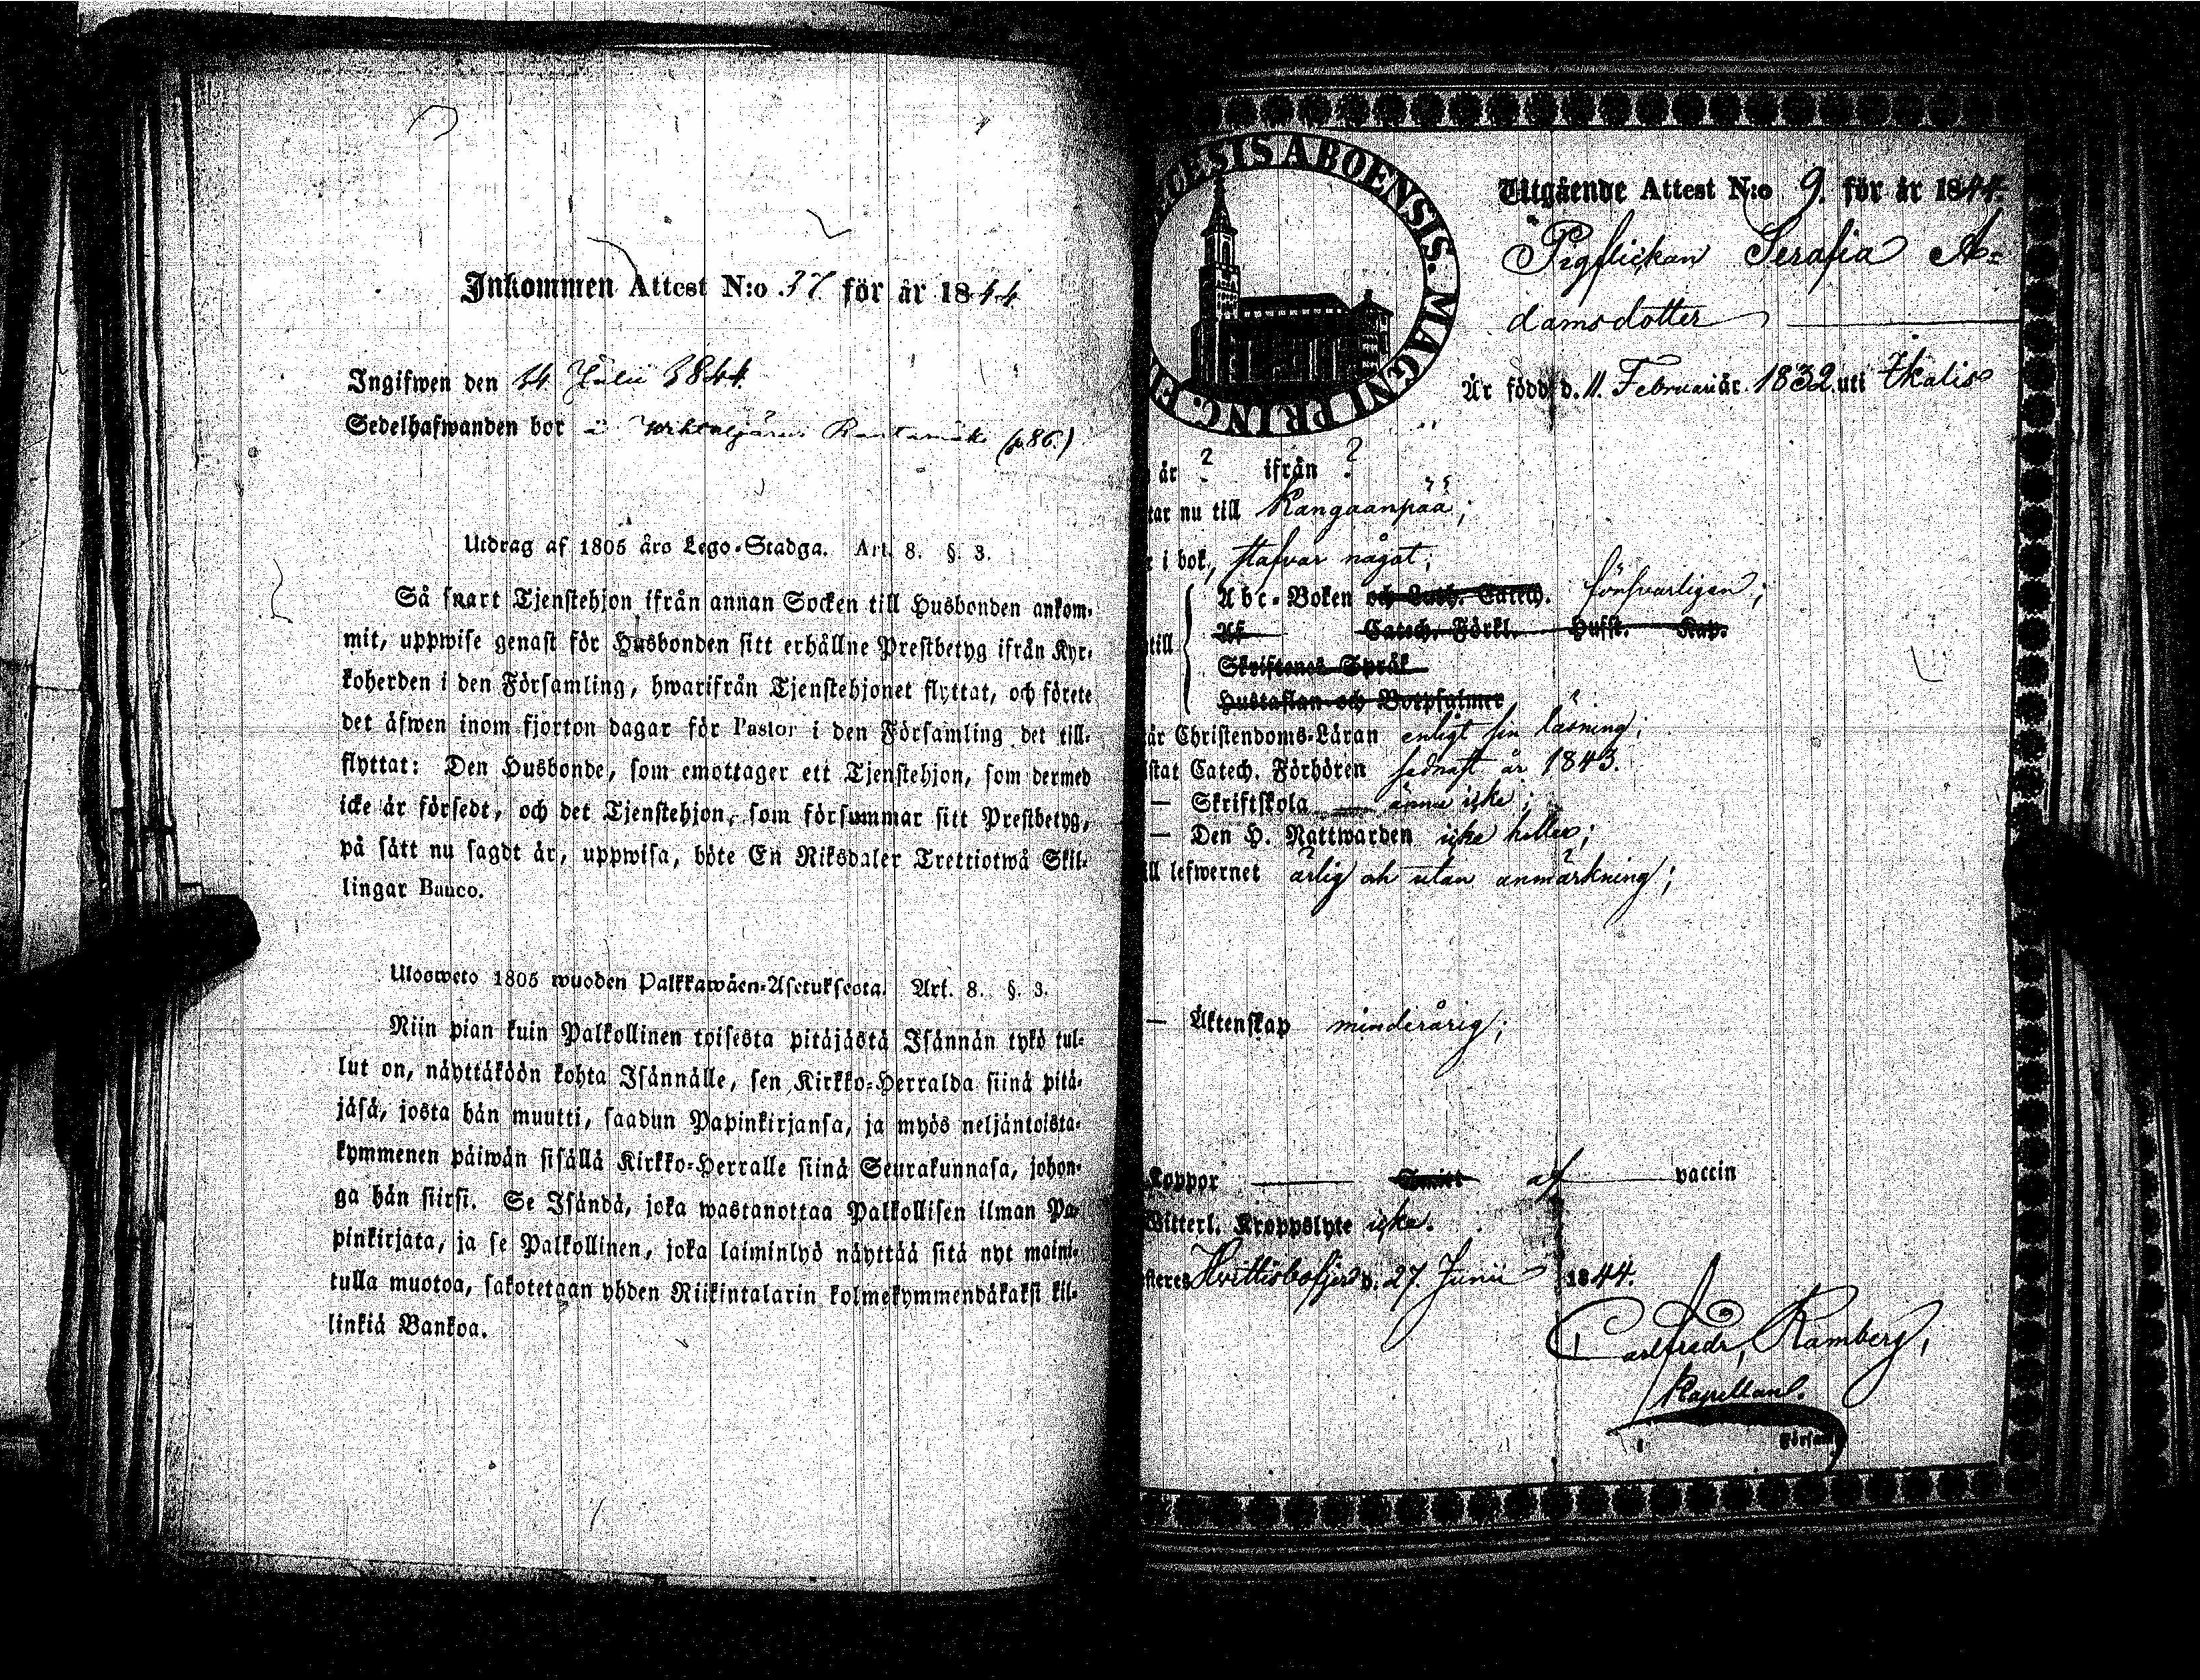 Inkommen Attest N:o 37 för år 1844
Ingifwen den 14 Julii 1844
Sedelhafwanden bor i Rantamäki (p.86.)
Utdrag af 1805 års Lego-Stadga. Art. 8. §. 3.
Så snart Tjenstehjon ifrån annan Socken till Husbonden ankom-
mit, uppwise genast för Husbonden sitt erhållne Prestbetyg ifrån Kyr-
koherden i den Församling, hwarifrån Tjenstehjonet flyttat, och förete
det äfwen inom fjorton dagar för Pastor i den Församling det till-
flyttat: Den Husbonde, som emottager ett Tjenstehjon, som dermed
icke är försedt, och det Tjenstehjon, som försummar sitt Prestbetyg,
på sätt nu sagdt är, uppwisa, böte En Riksdaler Trettiotwå Skil-
lingar Banco.
Ulosweto 1805 wuoden Palkkawäen-Asetuksesta. Art. 8. §. 3.
Niin pian kuin Palkollinen toisesta pitäjästä Isännän tykö tul-
lut on, näyttäköön kohta Isännälle, sen Kirkko-Herralda siinä pitä-
jäsä, josta hän muutti, saadun Papinkirjansa, ja myös neljäntoista-
kymmenen päiwän sisällä Kirkko-Herralle siinä Seurakunnasa, johon-
ga hän siirsi. Se Isändä, joka wastanottaa Palkollisen ilman Pa-
pinkirjata, ja se Palkollinen, joka laiminlyö näyttää sitä nyt maini-
tulla muotoa, sakotetaan yhden Riikintalarin kolmekymmendäkaksi kil-
linkiä Bankoa.
OESIS ABOENSIS. MAGNI PRINC. F
Utgående Attest N:o 9. för år 1844.
Pigflickan Serafia A=
damsdotter
Är född d. 11. Februari år 1832. uti Ikalis
år ? ifrån ?
tar nu till Kangaanpää;
i bok, stafvar något;
till
Abc-Boken och Luth. Catech. försvarligen;
Af Catech. Förkl. Hufst. Kap.
Skriftenes Språk
Hustaflan och Botpsalmer
är Christendoms-Läran enligt sin läsning;
istat Catech. Förhören sednast år 1843.
— Skriftskola ännu icke;
— Den H. Nattwarden icke heller;
ill lefwernet ärlig och utan anmärkning;
— Äktenskap minderårig;
Koppor af vaccin
Witterl. Kroppslyte icke.
steres Hvittisbofjerd d. 27. Junii 1844.
Carl Fredr. Ramberg,
Kapellan.
i Försam